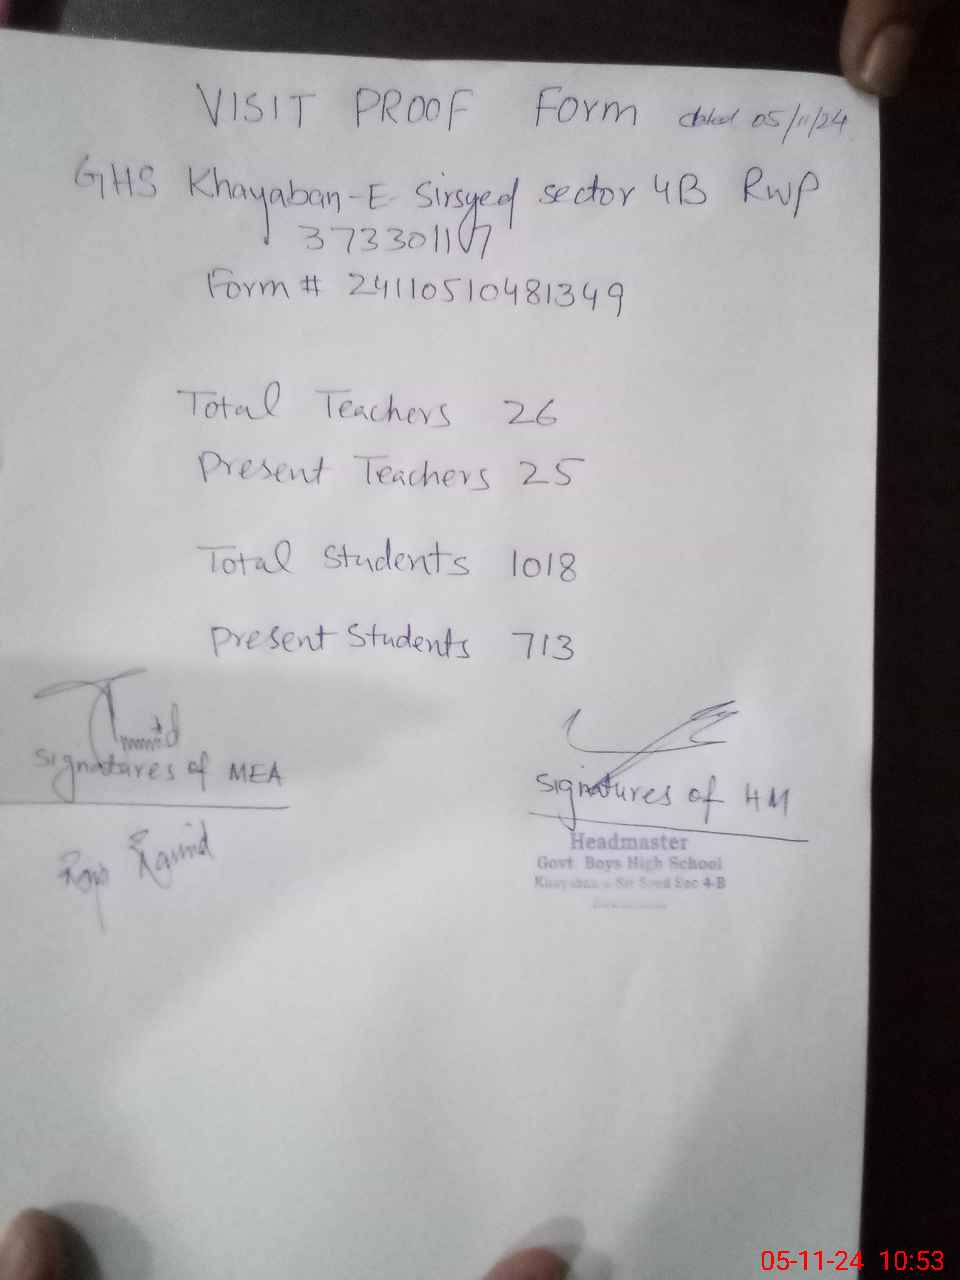 VISIT PROOF Form dated 05/11/24
GHS Khayaban-E-Sirsyed sector 4B RWP
37330117
Form # 24110510481349
Total Teachers 26
Present Teachers 25
Total Students 1018
Present Students 713
signatures of MEA
signatures of HM
Headmaster
Govt. Boys High School
Sec 4-B
05-11-24 10:53